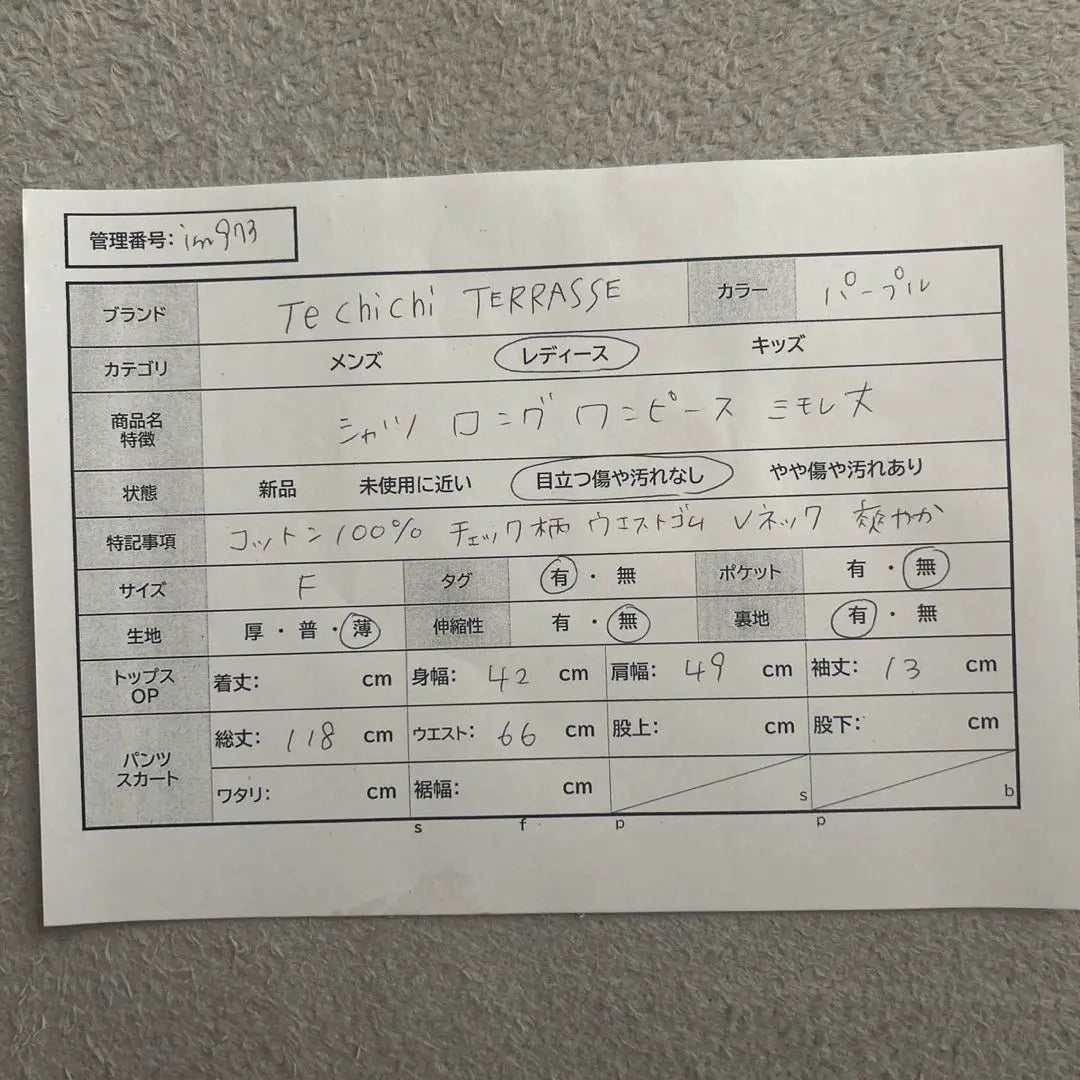 管理番号: im973
ブランド Te chichi TERRASSE カラー パープル
カテゴリ メンズ レディース キッズ
商品名 特徴 シャツ ロング ワンピース ミモレ丈
状態 新品 未使用に近い 目立つ傷や汚れなし やや傷や汚れあり
特記事項 コットン100% チェック柄 ウエストゴム Vネック 爽やか
サイズ F タグ 有・無 ポケット 有・無
生地 厚・普・薄 伸縮性 有・無 裏地 有・無
トップス OP 着丈: cm 身幅: 42 cm 肩幅: 49 cm 袖丈: 13 cm
パンツ スカート 総丈: 118 cm ウエスト: 66 cm 股上: cm 股下: cm
ワタリ: cm 裾幅: cm s b
s f p p